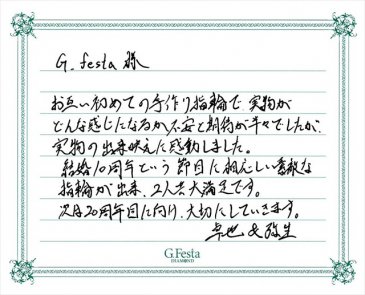 G.festa 様
お互い初めての手作り指輪で、実物が
どんな感じになるか不安と期待が半々でしたが、
実物の出来映えに感動しました。
結婚10周年という節目に相応しい素敵な
指輪が出来、2人共大満足です。
次は20周年目に向け、大切にしていきます。
卓也 & 弥生
G.Festa
DIAMOND